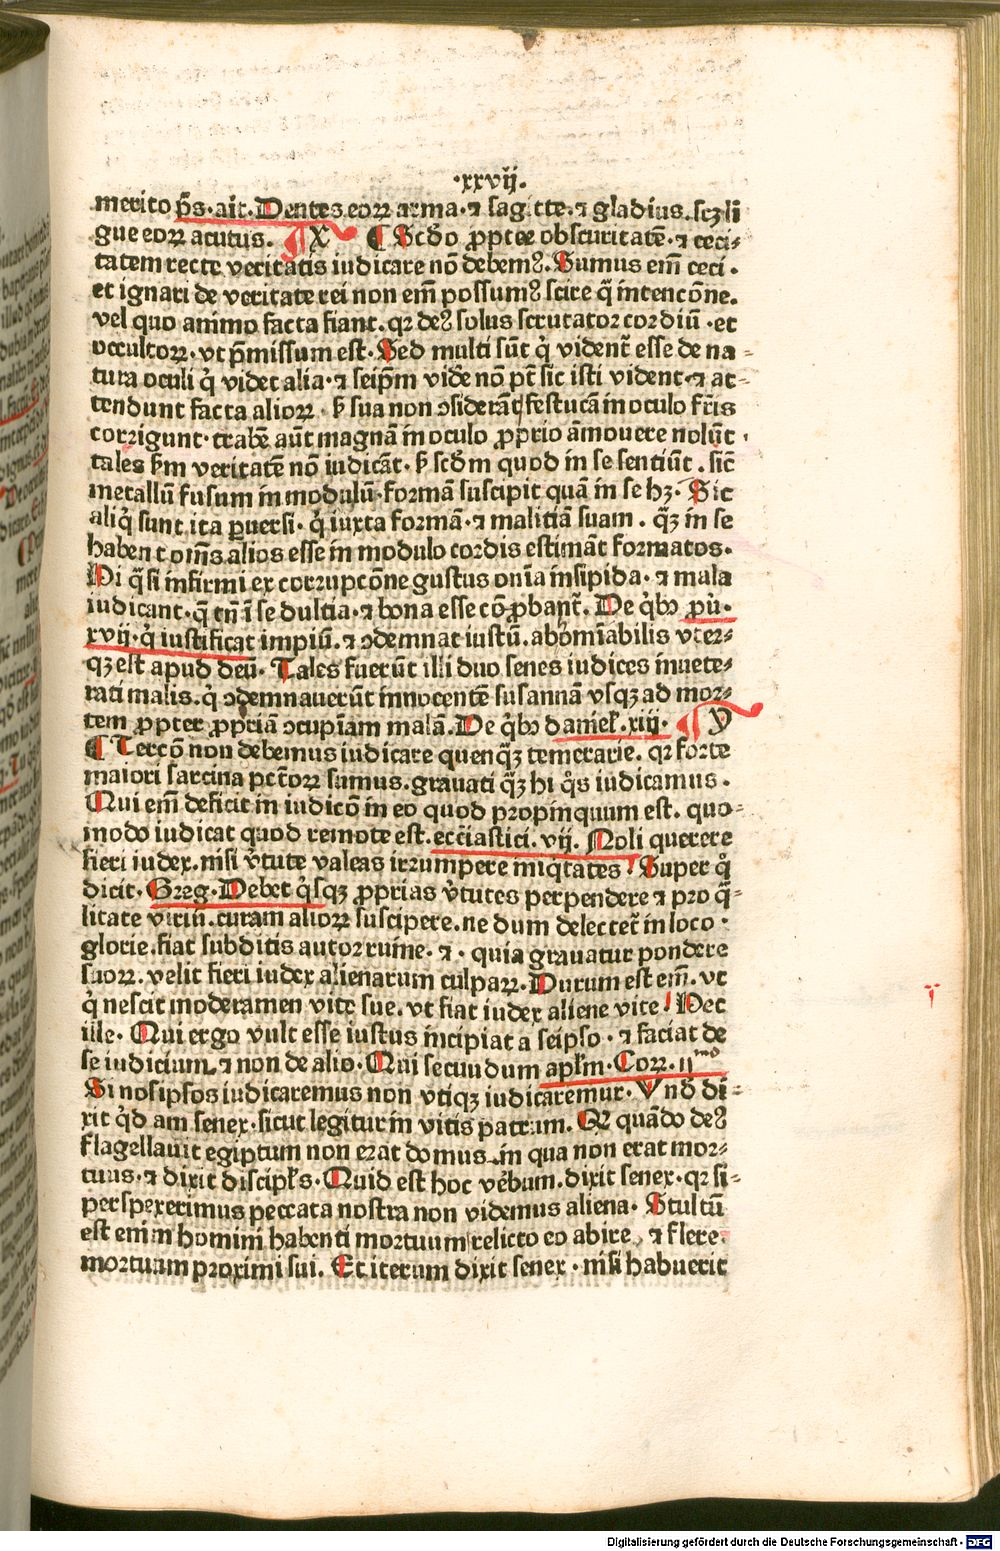 ·xxvij.
merito p̄s. ait. Dentes eoꝝ arma. ⁊ sagitte. ⁊ gladius. scꝫ li
gue eoꝝ acutus. X ¶ Scd̄o ꝓpter obscuritatē. ⁊ ceci-
tatem recte veritatis iudicare nō debemꝰ. Sumus em̄ ceci.
et ignari de veritate rei non em̄ possumꝰ scire q̄ intencōne.
vel quo animo facta fiant. qꝛ deꝰ solus scrutator cordiū. et
occultoꝝ. vt p̄missum est. Sed multi sūt q̇ vident̄ esse de na-
tura oculi q̇ videt alia. ⁊ seip̄m vide nō pt̄ sic isti vident. ⁊ at-
tendunt facta alioꝝ. ẜ sua non ↄsiderāt festucā in oculo fr̄is
corrigunt. trabē aūt magnā in oculo ꝓprio āmouere nolūt.
tales ẜm veritatē nō iudicāt. ẜ scd̄m quod in se sentiūt. sic̄
metallū fusum in modulū. formā suscipit quā in se hꝫ. Sic
aliq̇ sunt ita ꝑuersi. q̇ iuxta formā. ⁊ malitiā suam. q̄ꝫ in se
habent om̄s alios esse in modulo cordis estimāt formatos.
Hi q̄si infirmi ex corrupcōne gustus om̄ia insipida. ⁊ mala
iudicant. q̄ tn̄ ī se dulcia. ⁊ bona esse cōꝓbant̄. De q̇bꝰ pu̇.
xvij. q̇ iustificat impiū. ⁊ ↄdemnat iustū. abhomīabilis vter-
qꝫ est apud deū. Tales fuerūt illi duo senes iudices inuete-
rati malis. q̇ ↄdemnauerūt innocentē susannā vsqꝫ ad mor-
tem ꝓpter ꝓpriā ↄcupīam malā. De q̇bꝰ daniel. xiij. Y
¶ Tercō non debemus iudicare quenqꝫ temerarie. qꝛ forte
maiori sarcina pctōꝝ sumus. grauati q̄ꝫ hi q̊s iudicamus.
Qui em̄ deficit in iudicō in eo quod propinquum est. quo-
modo iudicat quod remote est. eccīastici. vij. Noli querere
fieri iudex. nisi v̄tute valeas irrumpere iniq̇tates. Super q̊
dicit. Greg. Debet q̇sqꝫ ꝓprias v̄tutes perpendere ⁊ pro q̄-
litate viriū. curam alioꝝ suscipere. ne dum delectet̄ in loco
glorie. fiat subditis autor ruine. ⁊. quia grauatur pondere
suoꝝ. velit fieri iudex alienarum culpaꝝ. Durum est em̄. vt
q̇ nescit moderamen vite sue. vt fiat iudex aliene vite. Hec
ille. Qui ergo vult esse iustus incipiat a seipso. ⁊ faciat de
se iudicium. ⁊ non de alio. Qui secundum apl̄m. Coꝝ. ijᵐᵒ
Si nosipsos iudicaremus non vtiqꝫ iudicaremur. Vnd̄ di-
xit q̇dam senex. sicut legitur in vitis patrum. Qꝛ quādo deꝰ
flagellauit egiptum non erat domus in qua non erat mor-
tuus. ⁊ dixit discipl̄s. Quid est hoc v̄bum. dixit senex. qꝛ si-
perspexerimus peccata nostra non videmus aliena. Stultū
est enim homini habenti mortuum relicto eo abire, ⁊ flere
mortuum proximi sui. Et iterum dixit senex. nisi habuerit
Digitalisierung gefördert durch die Deutsche Forschungsgemeinschaft - DFG